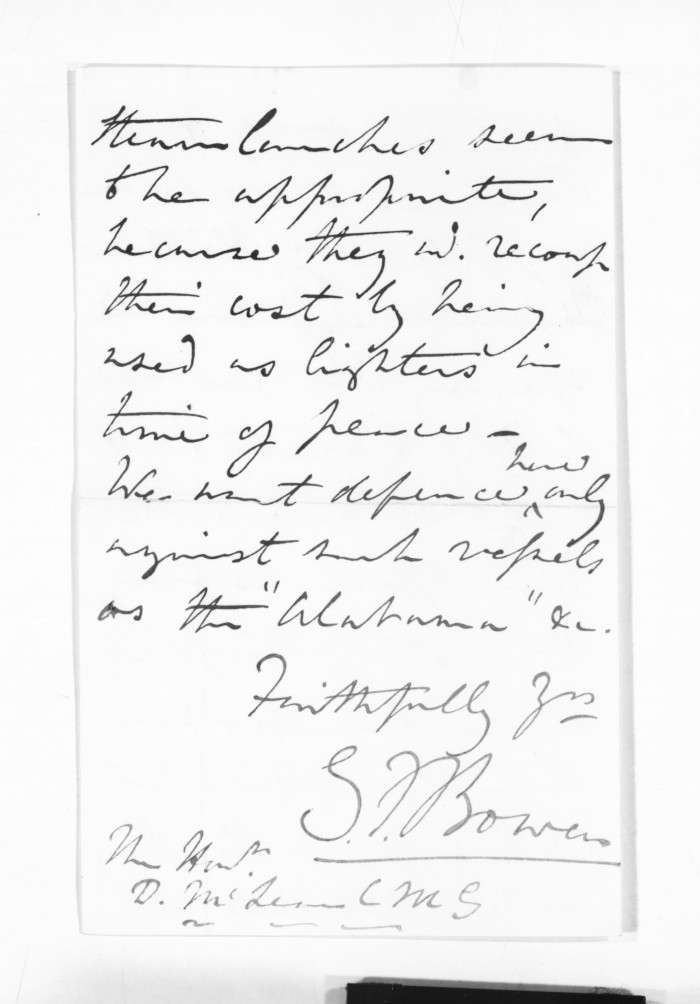 Steam launches seem
the appropriate,
because they wd. recoup
their cost by being
used as lighters in
time of peace –
We want defence here only
against such vessels
as the "Alabama" &c.
Faithfully Yrs
G.F. Bowen
The Honble
D. McLean CMG